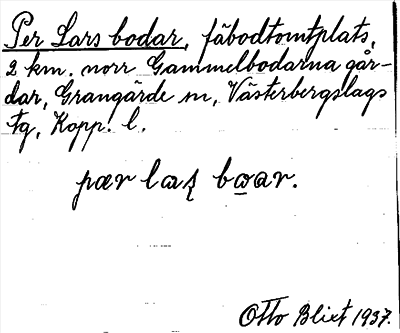 Per Lars bodar, fäbodtomtplats,
2 km. norr Gammelbodarna går-
dar, Grangärde sn, Västerbergslags
tg, Kopp. l.
pær
Otto Blixt 1937.